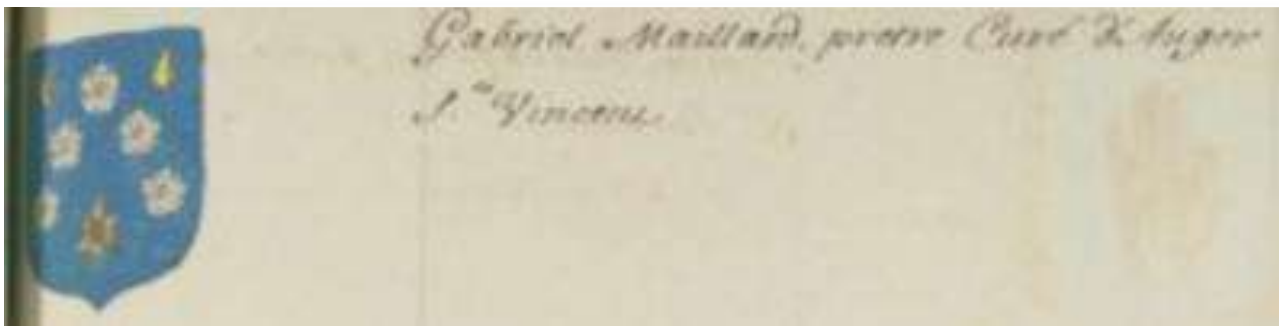 Gabriel Maillard, pretre Curé d'Auger
S.^t Vincent.